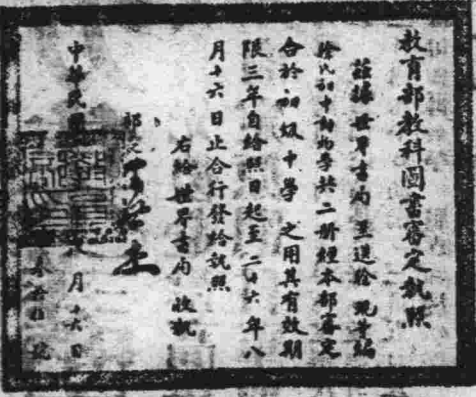 教育部教科圖書審定執照
茲據世界書局呈送徐琨等編
徐氏初中動物學共二册經本部審定
合於初級中學之用其有效期
限三年自給照日起至二十六年八
月十六日止合行發給執照
右給世界書局收執
部長
中華民國
月十六日
號